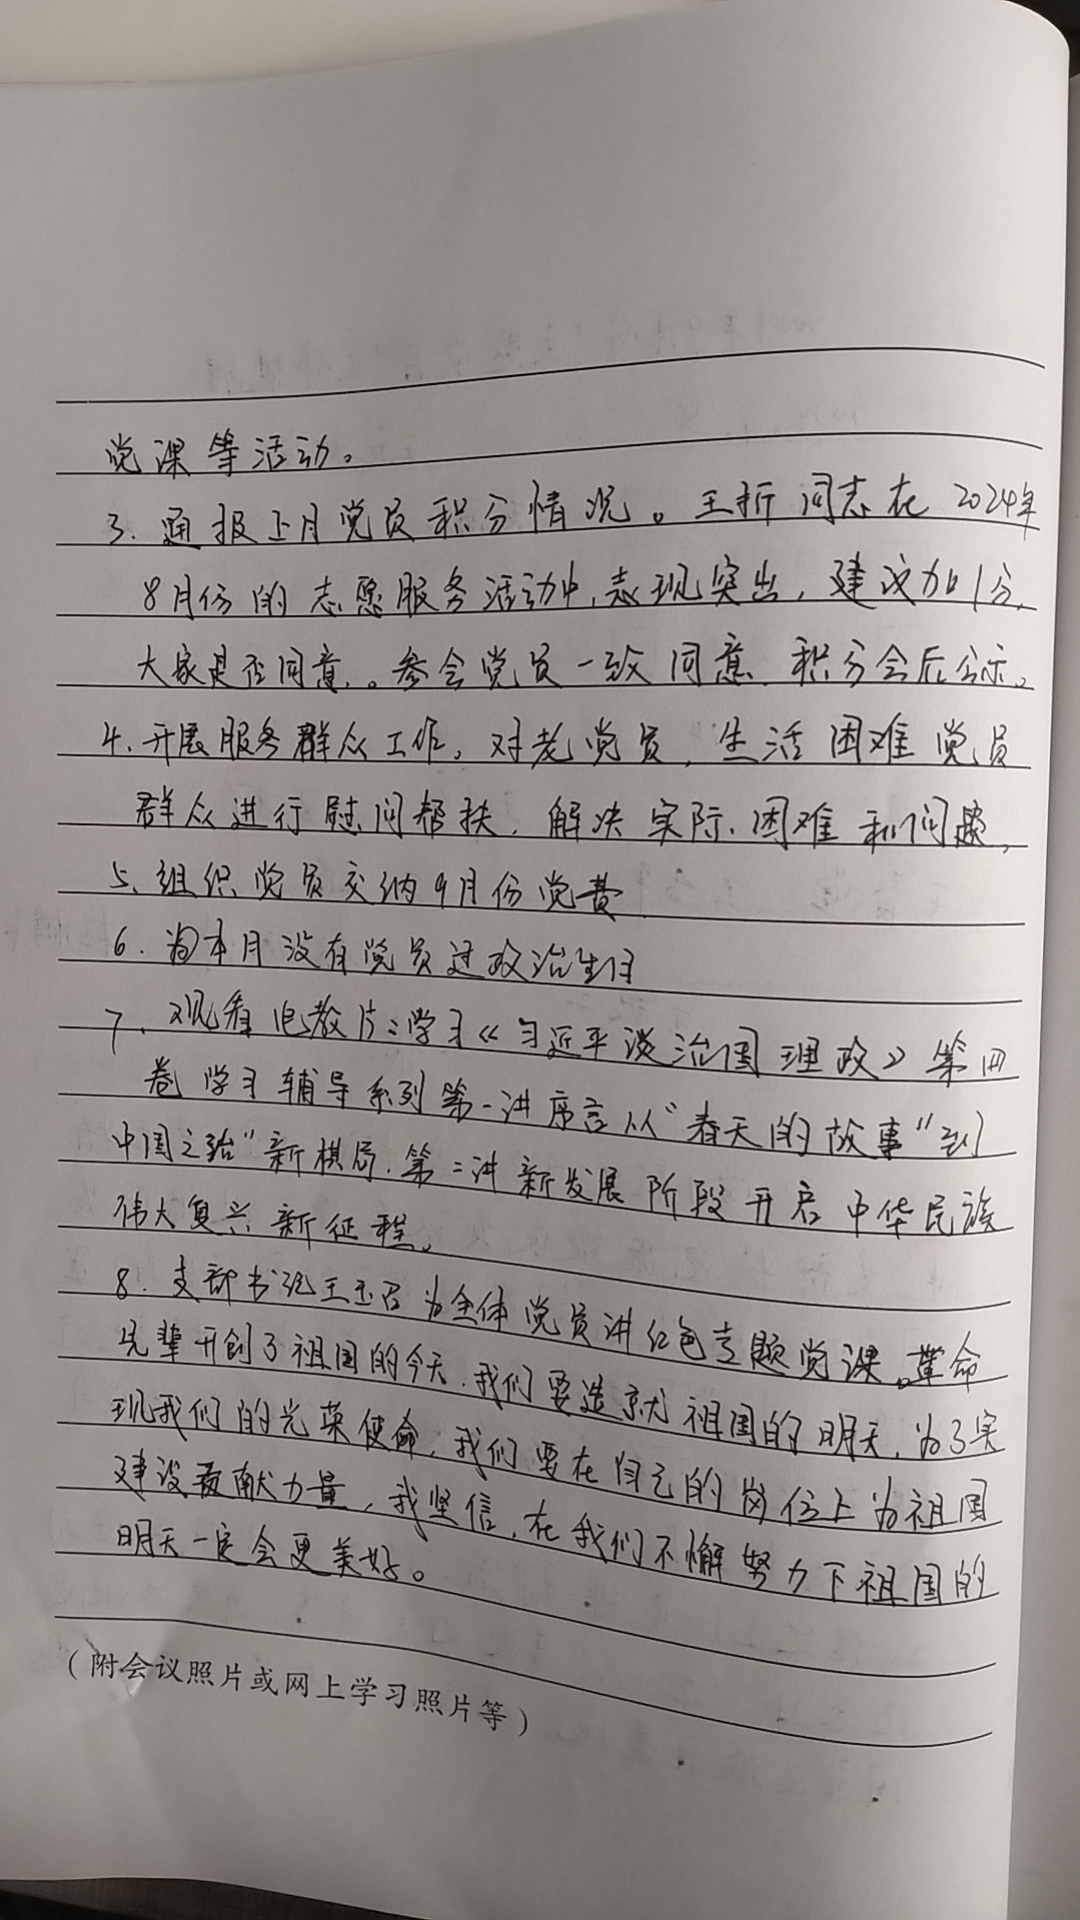 党课等活动。
3. 通报上月党员积分情况。王折同志在2024年
8月份的志愿服务活动中,表现突出,建议加1分,
大家是否同意。参会党员一致同意,积分会后公示。
4. 开展服务群众工作。对老党员,生活困难党员
群众进行慰问帮扶,解决实际困难和问题。
5、组织党员交纳9月份党费
6. 为本月没有党员过政治生日
7. 观看电教片:学习《习近平谈治国理政》第四
卷学习辅导系列第一讲序言从“春天的故事”到
中国之治”新棋局,第二讲新发展阶段开启中华民族
伟大复兴新征程。
8. 支部书记王玉召为全体党员讲红色专题党课。革命
先辈开创了祖国的今天,我们要造就祖国的明天,为了实
现我们的光荣使命,我们要在自己的岗位上为祖国
建设贡献力量,我坚信,在我们不懈努力下祖国的
明天一定会更美好。
(附会议照片或网上学习照片等)